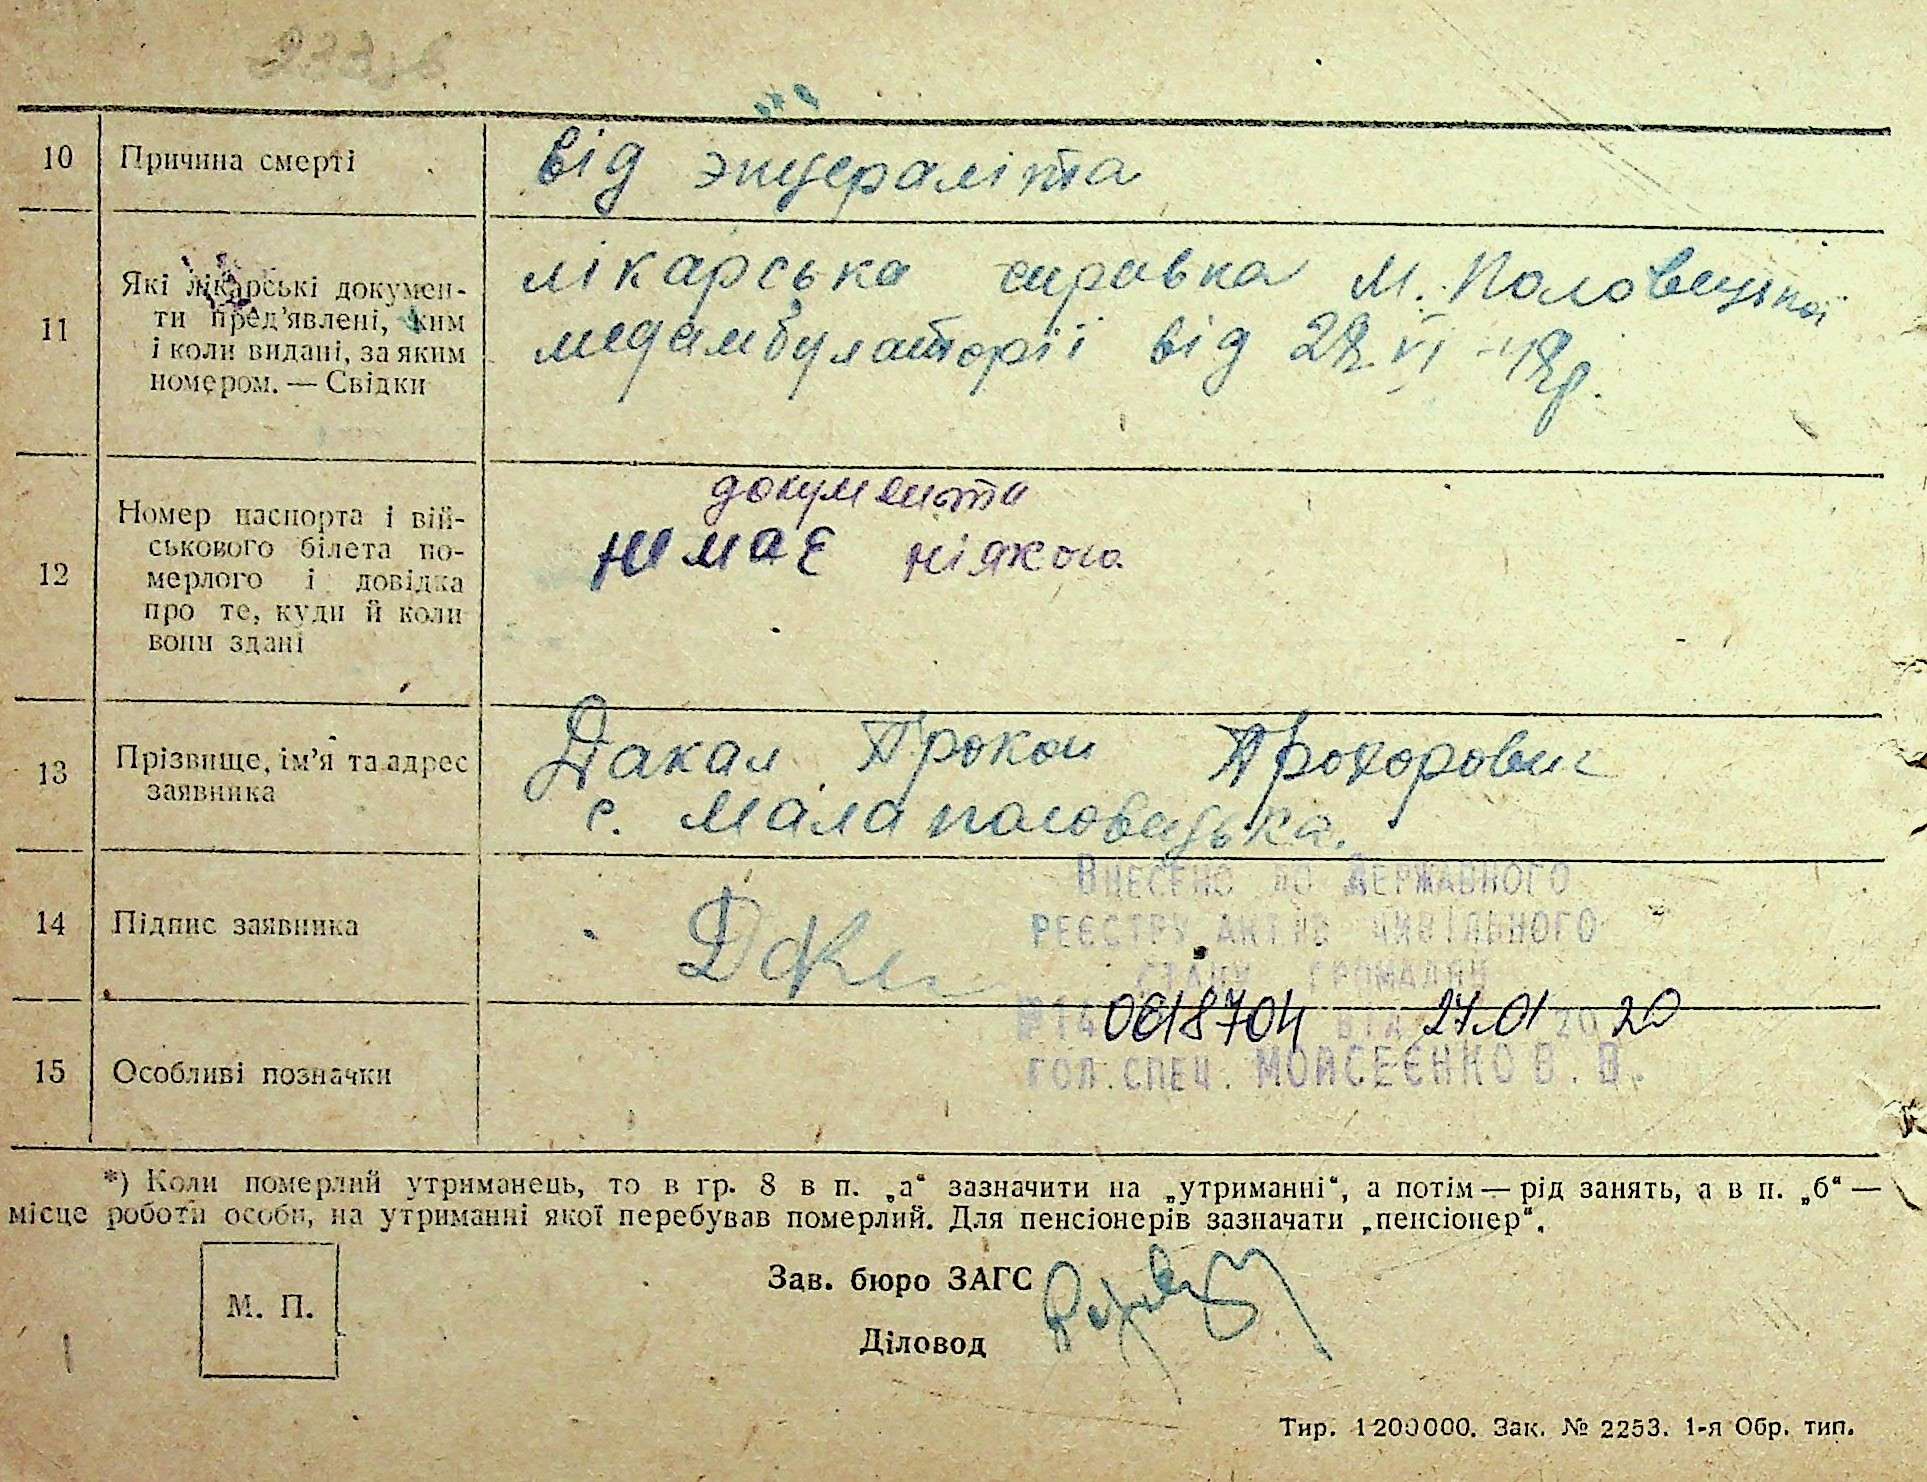 10 Причина смерті
від энцераліта
11 Які лікарські докумен-
ти пред'явлені, ким
і коли видані, за яким
номером. — Свідки
лікарська справка М. Половецької
медамбулаторії від 28.VI-48р.
12 Номер паспорта і вій-
ськового білета по-
мерлого і довідка
про те, куди й коли
вони здані
документа
немає ніякого
13 Прізвище, ім'я та адрес
заявника
Дакал Прокоп Прохорович
с. Мала половецька.
14 Підпис заявника
15 Особливі позначки
Внесено до Державного
реєстру актів цивільного
стану громадян
від 27.01 2020
гол. спец. Мойсеєнко В. В.
*) Коли померлий утриманець, то в гр. 8 в п. „а“ зазначити на „утриманні“, а потім — рід занять, а в п. „б“ —
місце роботи особи, на утриманні якої перебував померлий. Для пенсіонерів зазначати „пенсіонер“.
Зав. бюро ЗАГС
М. П.
Діловод
Тир. 1200000. Зак. № 2253. 1-я Обр. тип.